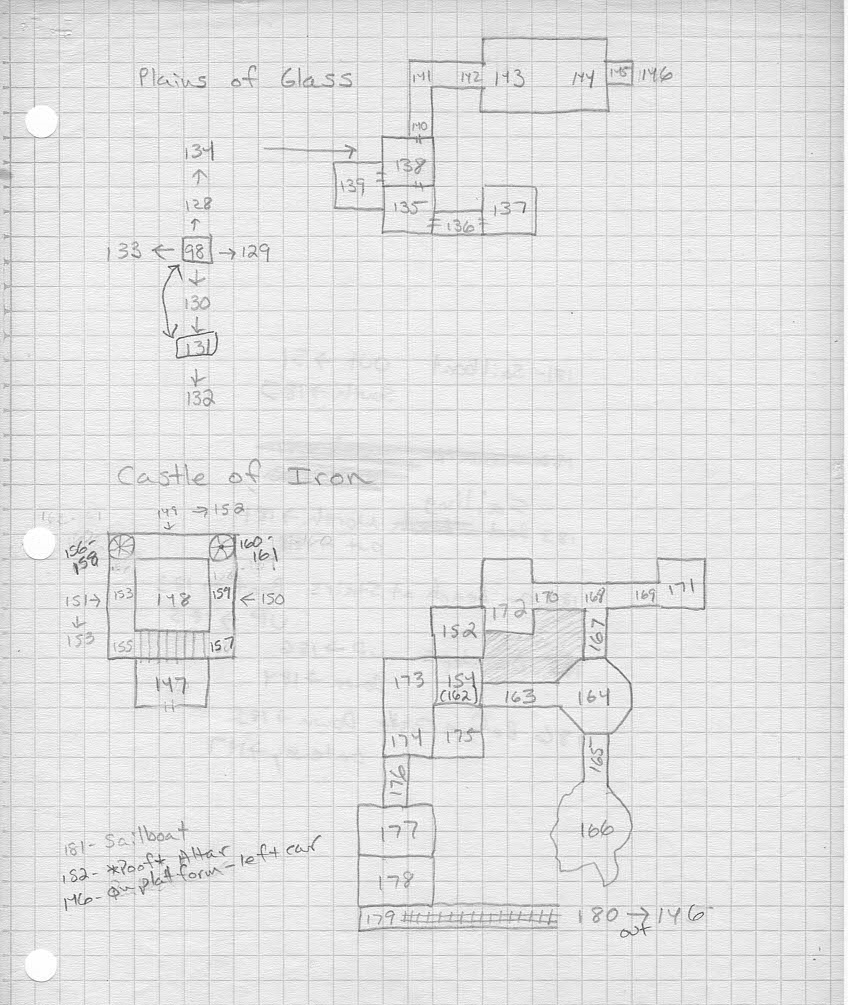 Plains of Glass
141 142 143 144 145 146
140
134
138
139
128
135 137
136
133 ← 98 → 129
130
131
132
Castle of Iron
149 → 152
156-
158
160-
161
151→ 153 148 159 ←150
153
155 157
147
171
172 170 168 169
152 167
173 154 163 164
(162)
174 175
176 165
177 166
178
181- Sailboat
182- *Poof* Altar
146- On platform - left car
179 180 → 146
out